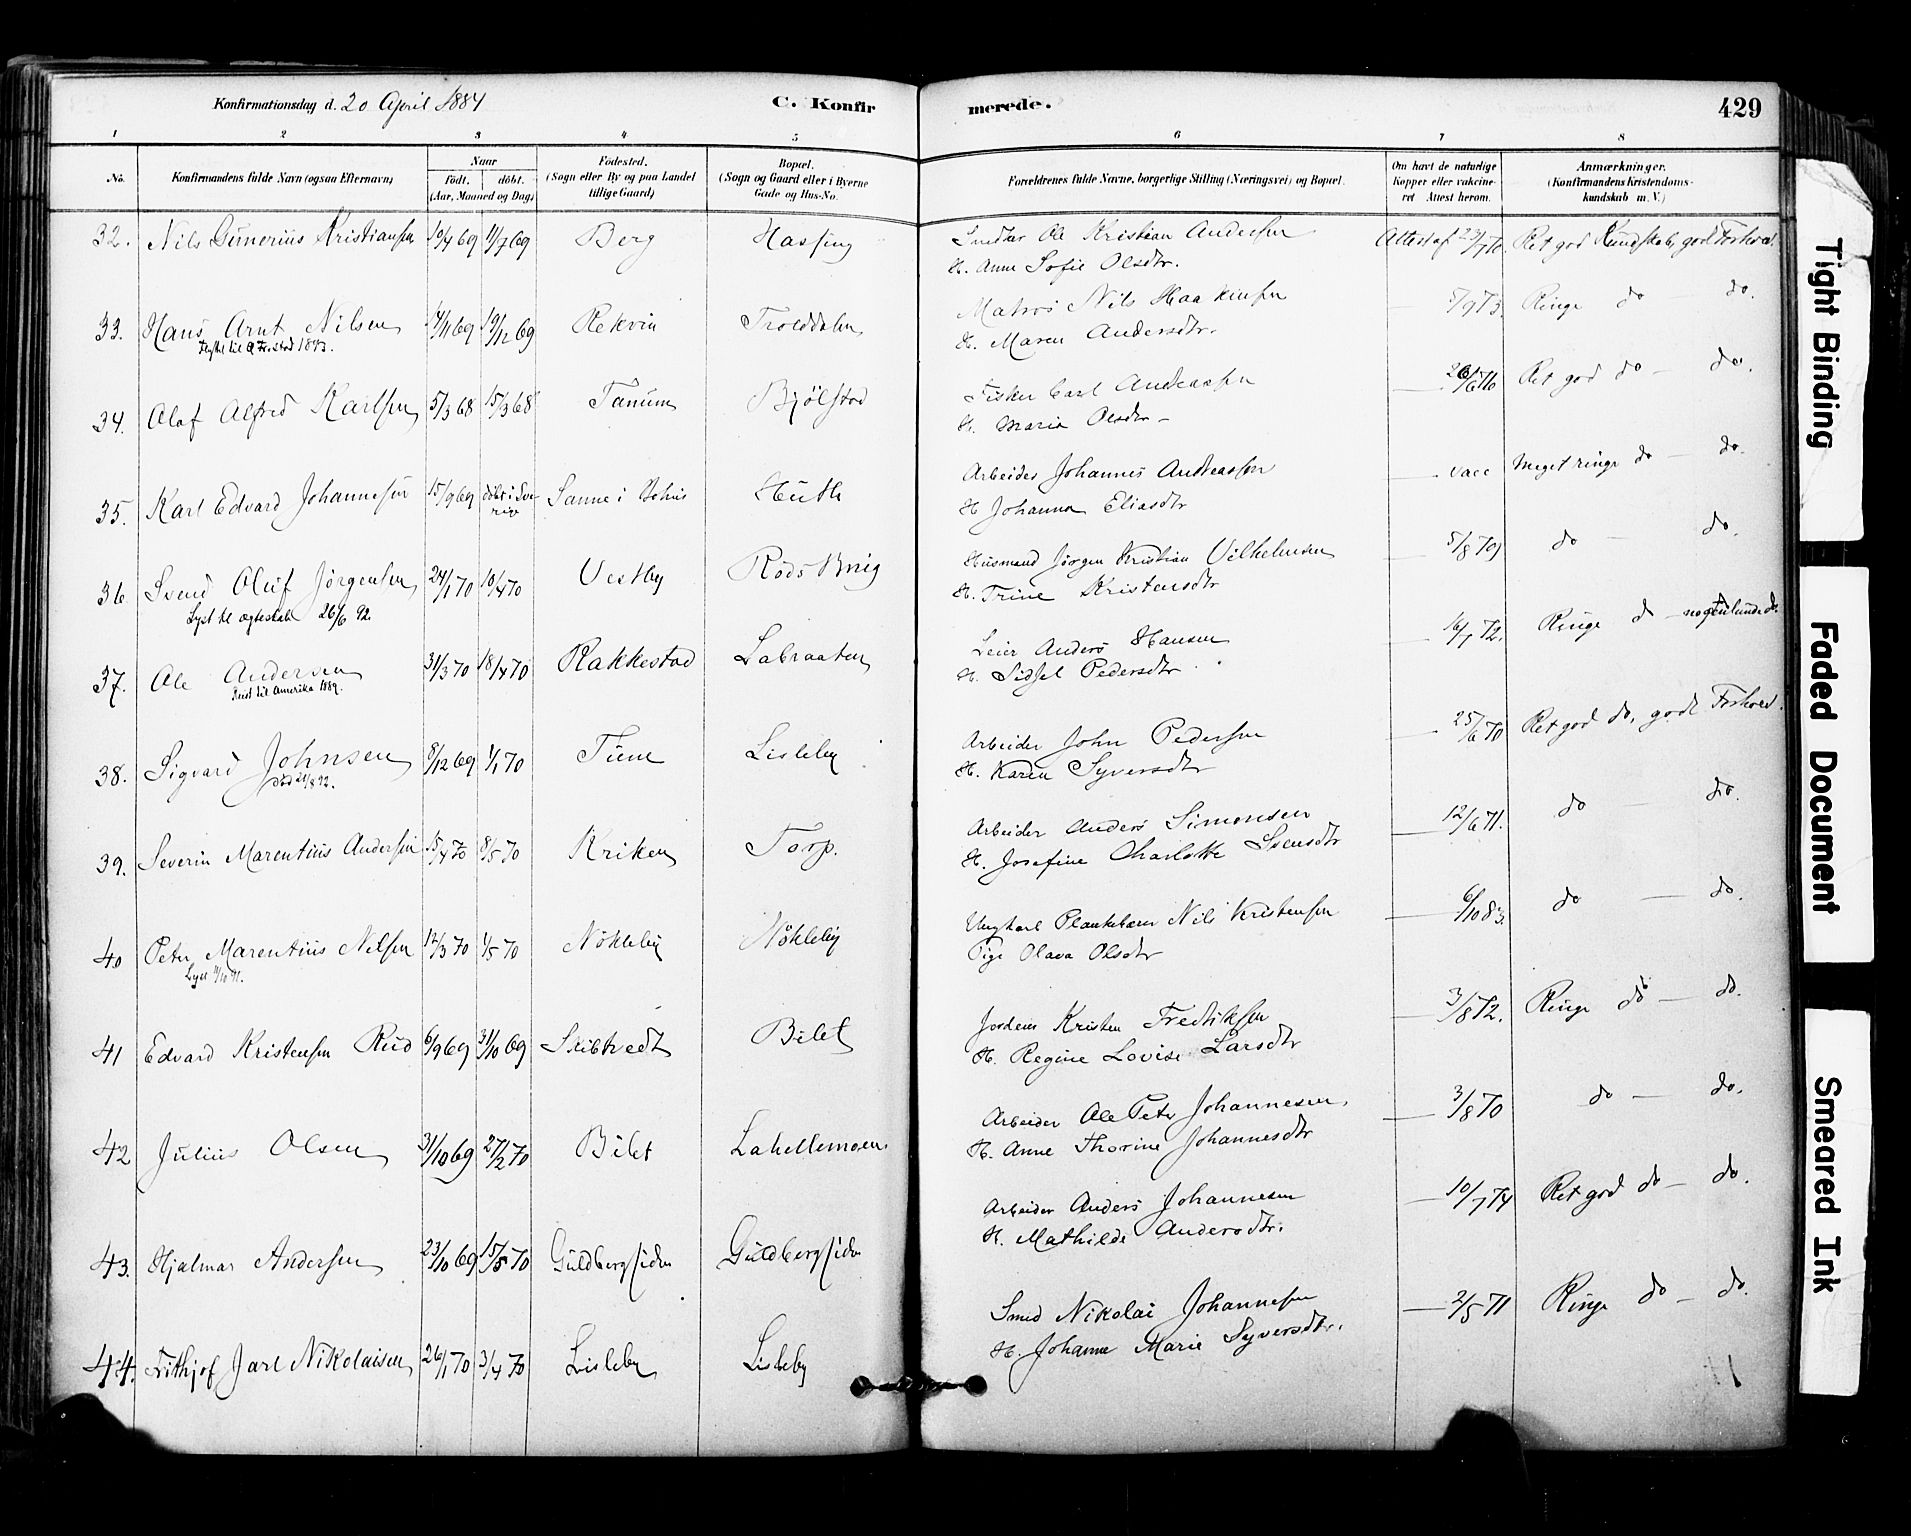 Konfirmationsdag d. 20 April 1884
C. Konfirmerede.
429
1 2 3 4 5 6 7 8
No.
Konfirmandens fulde Navn (ogsaa Efternavn)
Naar
født. døbt.
(Aar, Maaned og Dag)
Fødested.
(Sogn eller By og paa Landet
tillige Gaard)
Bopæl.
(Sogn og Gaard eller i Byerne
Gade og Hus-No.
Forældrenes fulde Navne, borgerlige Stilling (Næringsvei) og Bopæl.
Om havt de naturlige
Kopper eller vakcine-
ret Attest herom.
Anmærkninger.
(Konfirmandens Kristendoms-
kundskab m. V.)
32. Nils Gunerius Kristiansen 10/4 69 11/7 69 Berg Hassing Kristian Andersen Attest af 23/7 70. Ret god Kundskab, god Forhold.
H. Anne Sofie Olsdtr.
33. Hans Arnt Nilsen 14/11 69 19/12 69 Rekvin Trolddalen Matros Nils Haakensen 5/9 73. Ringe do — do.
H. Maren Andersdtr.
34. Olaf Alfred Karlsen 5/3 68 15/3 68 Tanum Bjølstad Fisker Carl Andreassen Ret god do — do.
H. Maria Olsdtr —
35. Karl Edvard Johannesen 15/9 69 døbt i Sve-
rig Sanne i Bohus Huth Arbeider Johannes Andreassen — vacc Meget ringe do — do.
H Johanna Eliasdtr
36. Svend Oluf Jørgensen 24/1 70 10/4 70 Vestby Røds Brug Husmand Jørgen Kristian Vilhelmsen — 5/8 70 do — do.
Lyst til ægteskab 26/6 92.
H. Trine Kristensdtr
37. Ole Andersen 31/3 70 18/4 70 Rakkestad Labraaten Leier Anders Hansen — 16/7 72. Ringe d — nogenlunde do.
Reist til Amerika 1889.
H. Sidsel Pedersdtr
38. Sigvard Johnsen 8/12 69 1/1 70 Tune Lisleby Arbeider John Pedersen — 25/6 70 Ret god do, godt Forhold.
H. Karen Syversdtr
39. Severin Marentius Andersen 15/4 70 8/5 70 Kriken Torp. Arbeider Anders Simonsen — 12/6 71. do — do.
H. Josefine Charlotte Svensdtr
40 Peter Marentius Nilsen 12/3 70 1/5 70 Nökleby Nökleby Ungkarl Nils Kristensen — 6/10 83. do — do.
Pige Olava Olsdtr
41 Edvard Kristensen Rud 6/9 69 31/10 69 Skibtvedt Bilet Kristen Fredriksen — 3/8 72. Ringe do — do.
H. Regine Lovise Larsdtr
42 Julius Olsen 31/10 69 27/2 70 Bilet Lahellemoen Arbeider Ole Peter Johannesen. — 3/8 70 do — do.
H. Anne Thorine Johannesdtr
43. Hjalmar Andersen 23/10 69 15/5 70 Guldbergsiden Guldbergsiden Arbeider Anders Johannesen — 10/7 74 Ret god do — do.
H. Mathilde Andersdtr.
44. Fithjof Jarl Nikolaisen 26/1 70 3/4 70 Lisleby Lisleby Smed Nikolai Johannesen — 2/5 71 Ringe do — do.
H. Johanne Marie Syversdtr.
Tight Binding
Faded Document
Smeared Ink